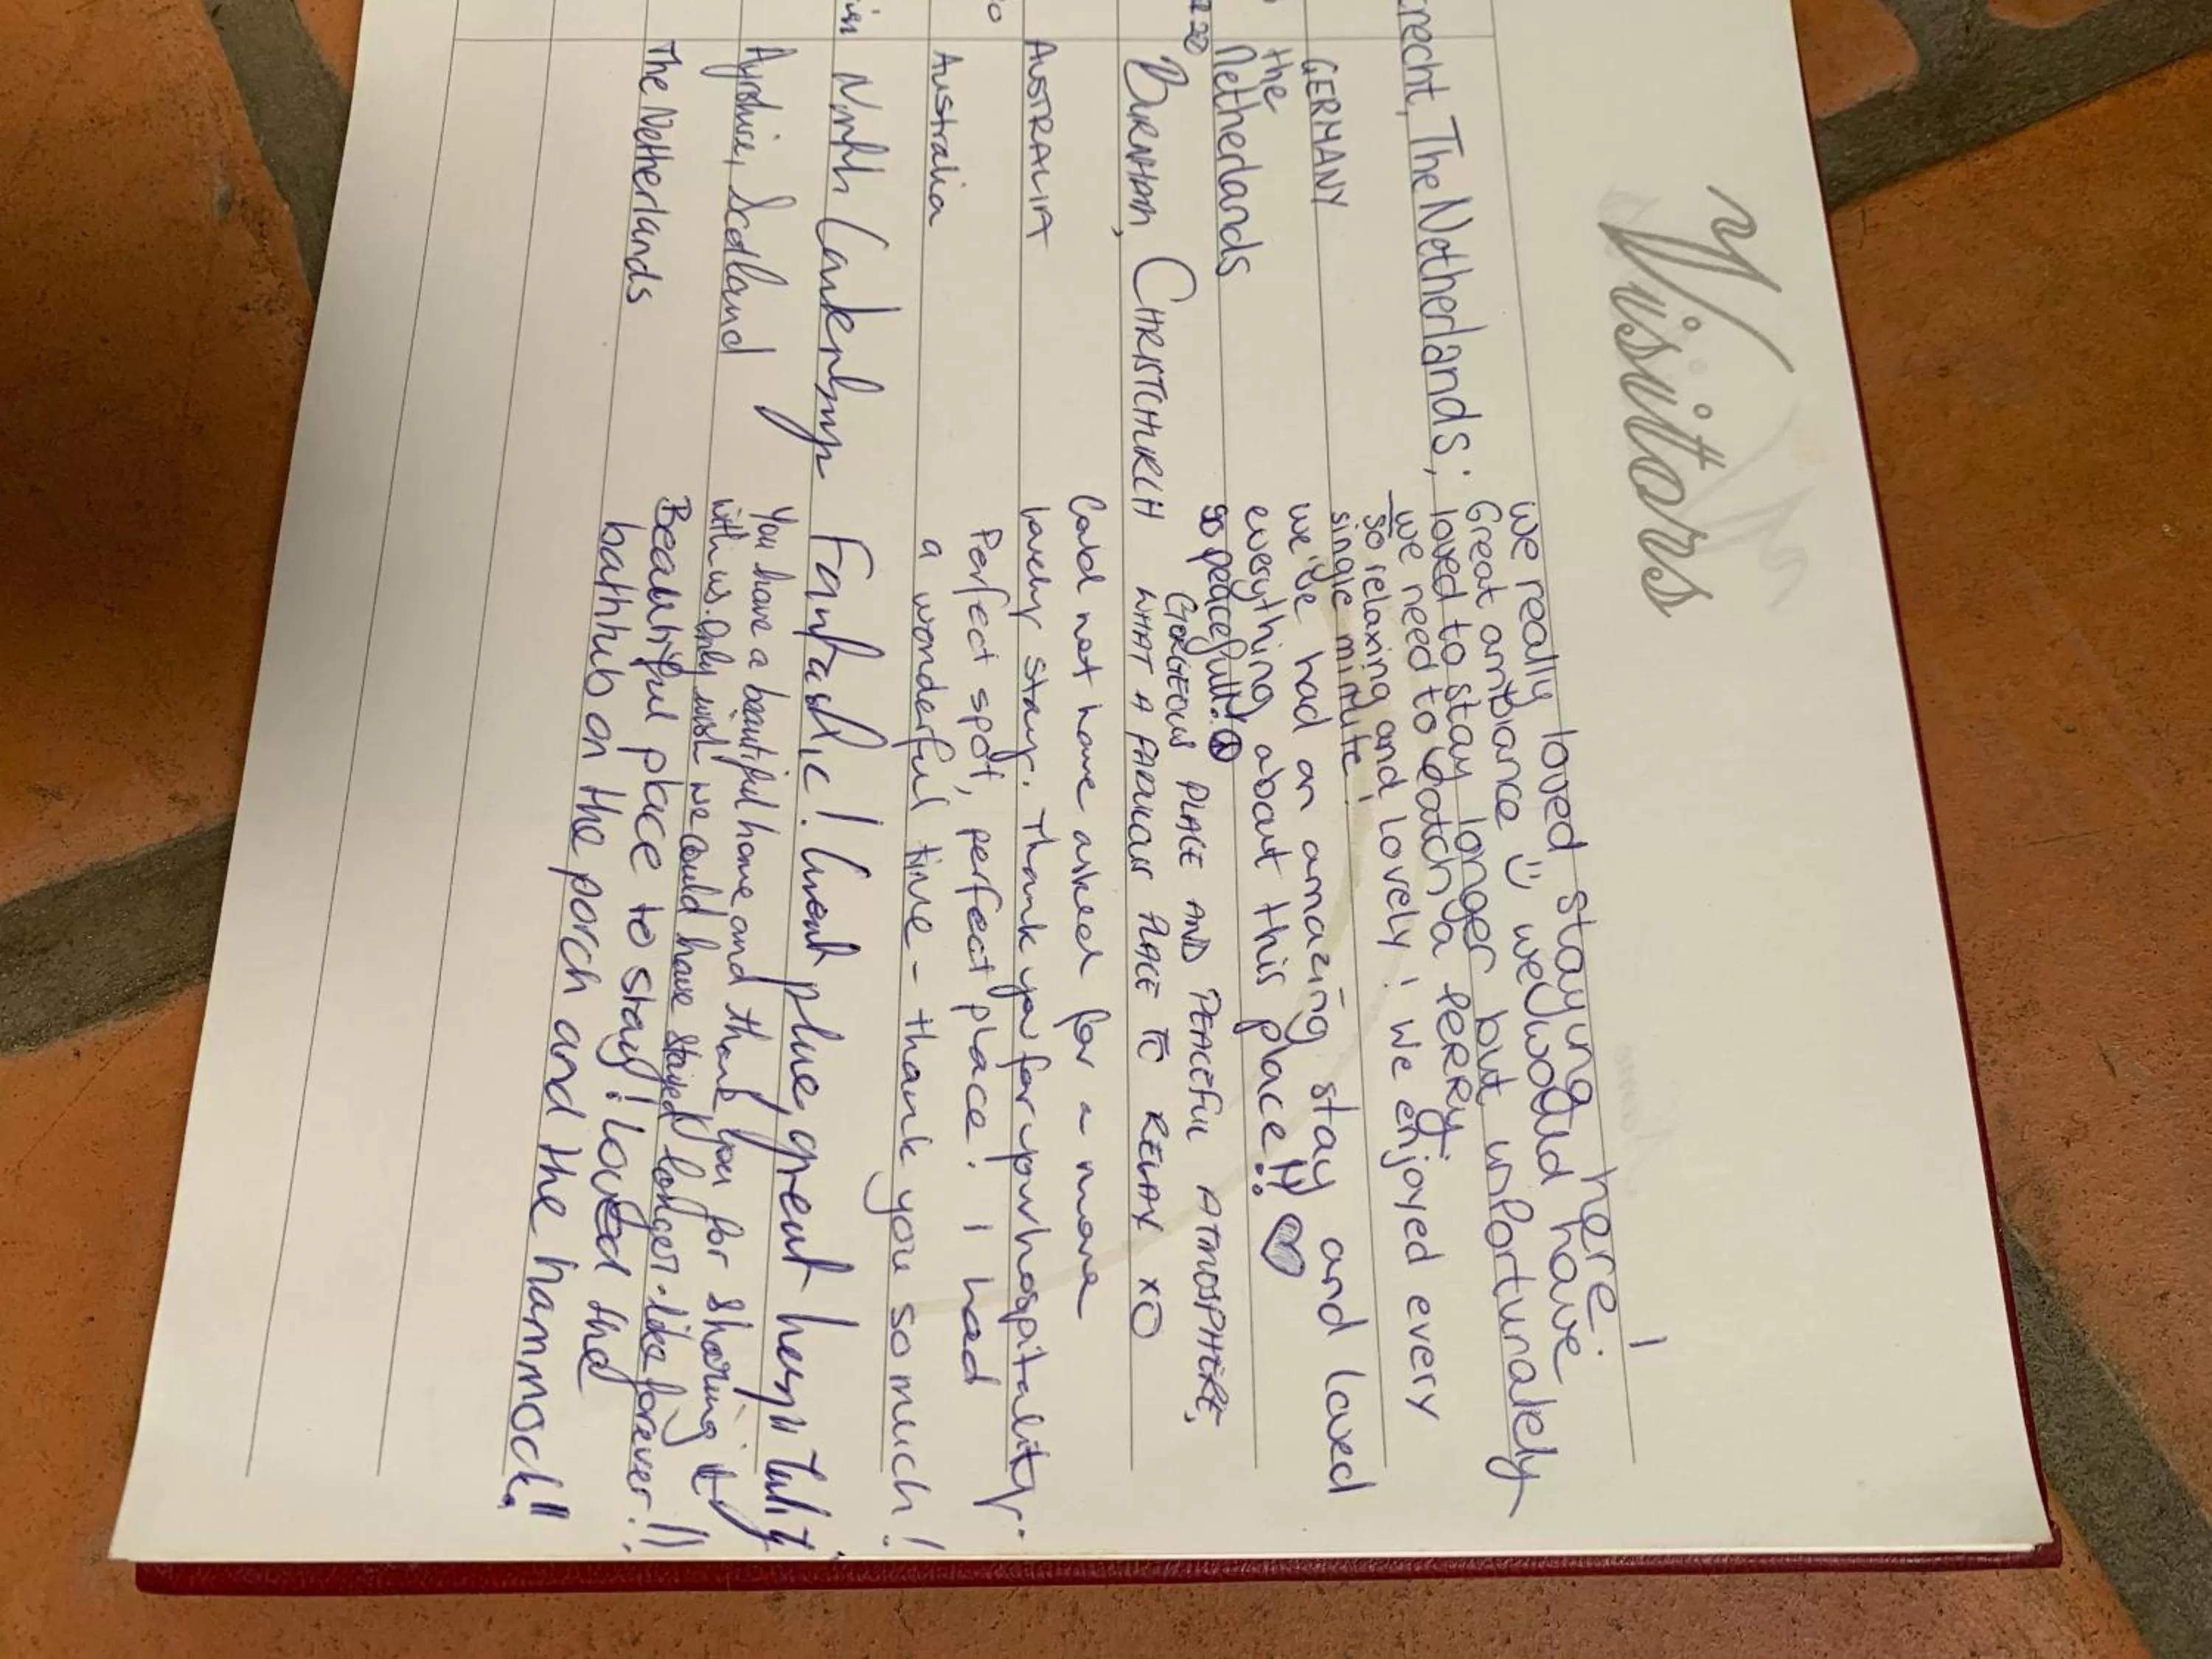 Visitors
We really loved staying here!
Great ambiance :) we would have
recht, The Netherlands; loved to stay longer but unfortunately
we need to catch a ferry.
so relaxing and lovely! We enjoyed every
single minute!
GERMANY
the we've had an amazing stay and loved
Netherlands everything about this place!! ♡
so peacefull!
GORGEOUS PLACE AND PEACEFUL ATMOSPHERE,
BURNHAM, CHRISTCHURCH WHAT A FABULOUS PLACE TO RELAX XO
Could not have asked for a more
AUSTRALIA lovely stay. Thank you for your hospitality.
Perfect spot, perfect place! I had
Australia a wonderful time - thank you so much!
North Canterbury Fantastic! Great place, great hospitality.
You have a beautiful home and thank you for sharing it
Ayrshire, Scotland with us. Only wish we could have stayed longer - like forever!!
The Netherlands Beautiful place to stay! loved the
bathtub on the porch and the hammock!!